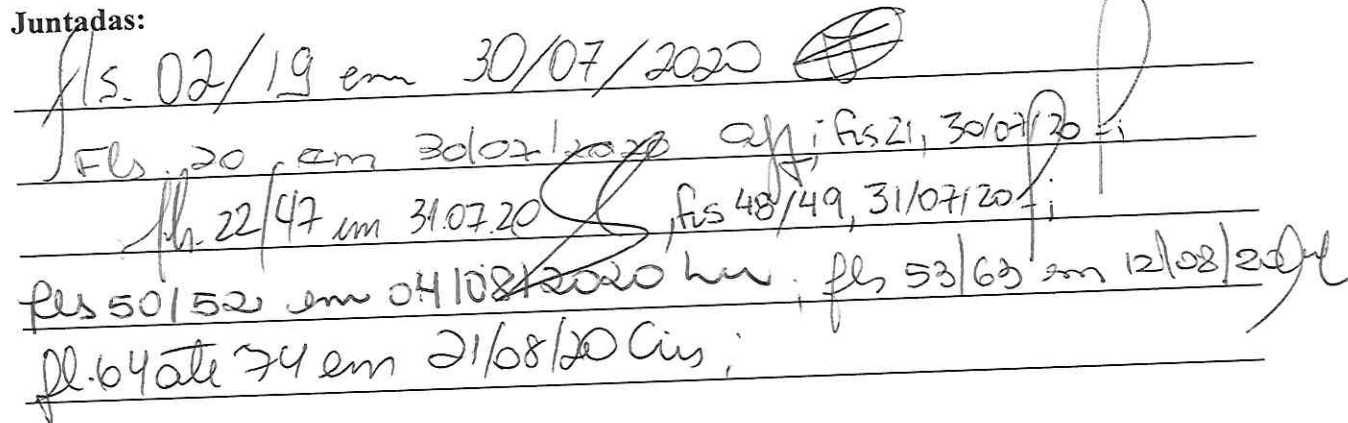 Juntadas:
fls. 02/19 em 30/07/2020
Fls. 20, em 30/07/2020 ; fls 21, 30/07/20 ;
fls. 22/47 em 31.07.20 , fls 48/49, 31/07/20 ;
fls 50/52 em 04/08/2020 ; fls 53/63 em 12/08/20
fl. 64 ate 74 em 21/08/20 ;